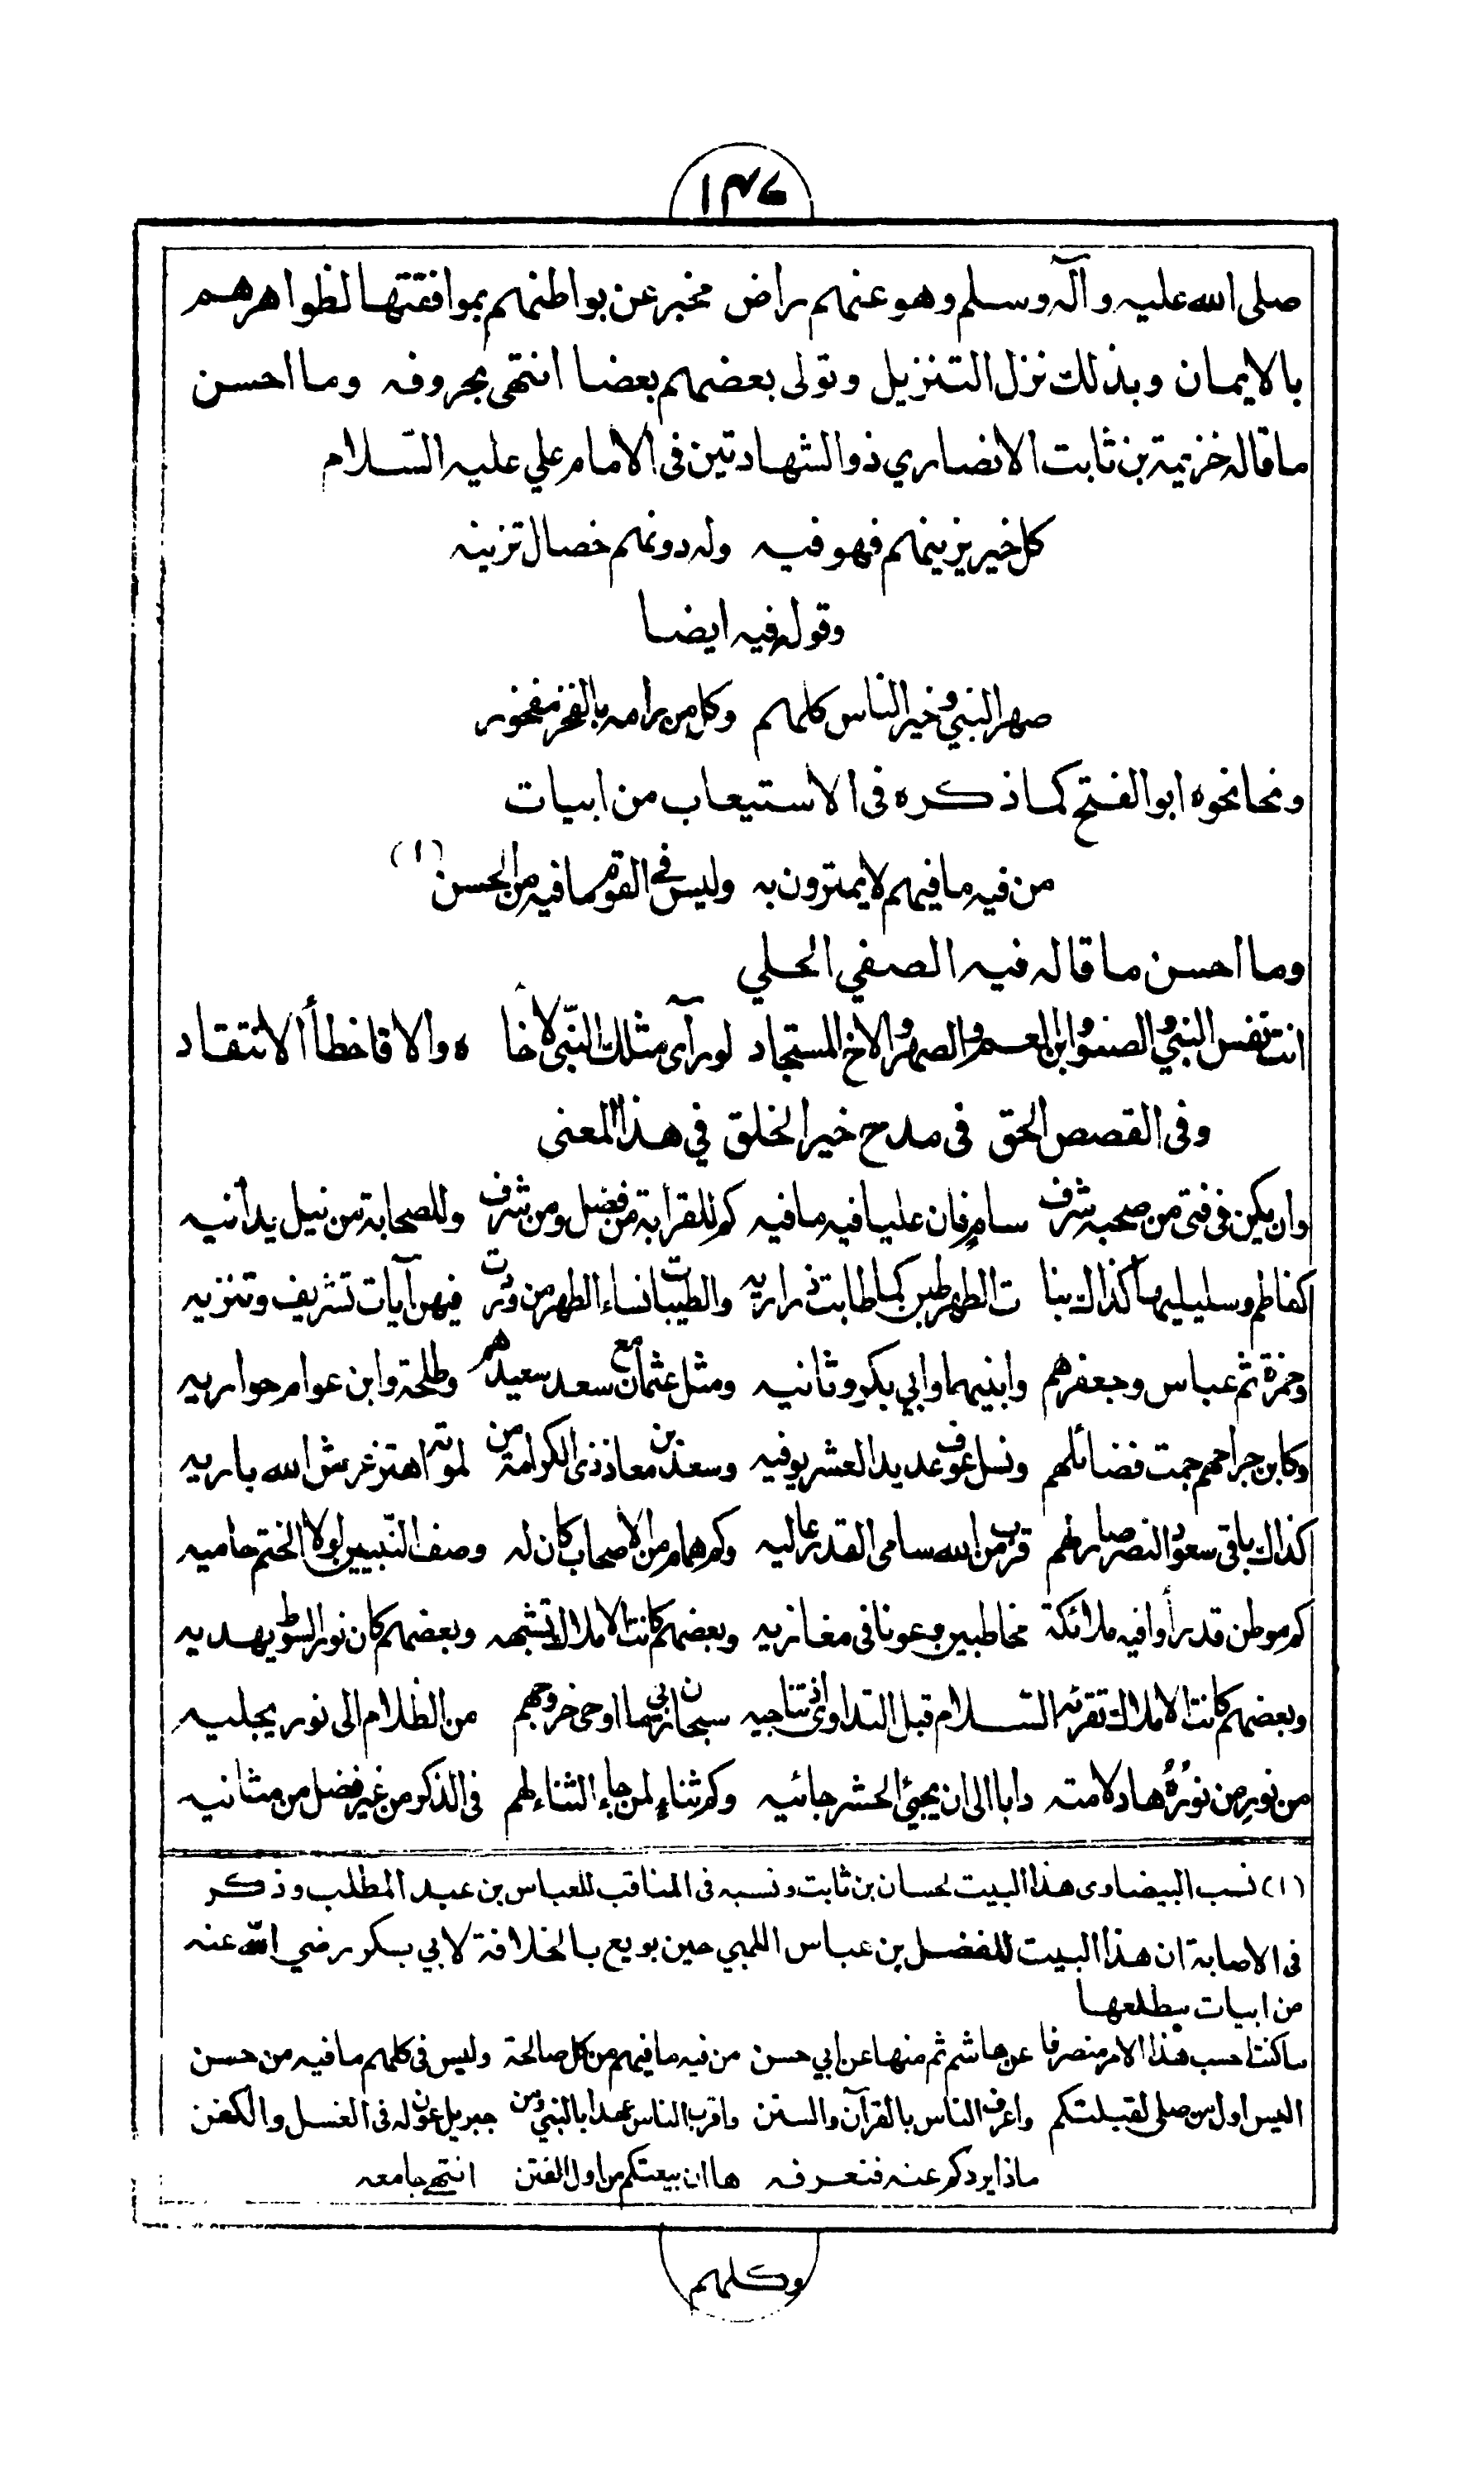 ١٣٧
صلى الله عليه وآله وسلم وهو عنهم راض مخبر عن بواطنهم بموافقتها لظواهرهم
بالايمان وبذلك نزل التنزيل وتولى بعضهم بعضا انتهى بحروفه وما احسن
ما قاله خزيمة بن ثابت الانصاري ذو الشهادتين فى الامام علي عليه السّلام
كل خير يزينهم فهو فيه وله دونهم خصال تزينه
وقوله فيه ايضا
صهر النبي وخير الناس كلهم وكل من رامه بالفخر مفخور
ونحا نحوه ابو الفتح كما ذكره فى الاستيعاب من ابيات
من فيه ما فيهم لا يمترون به وليس فى القوم ما فيه من الحسن (١)
وما احسن ما قاله فيه الصفي الحلي
انت نفس النبي والصنو وابن العم والصهر والاخ المستجاد لو رآى مثلك النّبى لآخا ه والا فاخطأ الانتقاد
وفى القصص الحق فى مدح خير الخلق في هذا المعنى
وان يكن فى فتى من صحبه شرف سامٍ فان عليا فيه ما فيه كم للقرابة من فضل ومن شرف وللصحابة من نيل يدانيه
كفاطم وسليليها كذاك بنا ت الطهر طبن كما طابت ذراريه والطيبات نساء الطهر من وردت فيهن آيات تشريف وتنزيه
وحمزة ثم عباس وجعفرهم وابنيهما وابي بكر وثانيه ومثل عثمان مع سعد سعيدهم وطلحة وابن عوام حواريه
وكابن جراحهم جمت فضائلهم ونسل عوف عديد العشر يوفيه وسعد بن معاذ ذى الكرامة من لموته اهتز عرش الله باريه
كذاك باقى سعود النصر صار لهم قرب من الله سامى القدر عاليه وكم همام من الاصحاب كان له وصف النّبيين لولا الختم حاميه
كم موطن قد رأوا فيه ملائكة مخاطبين وعونا فى مغازيه وبعضهم كانت الاملاك تشبهه وبعضهم كان نور السوط يهديه
وبعضهم كانت الاملاك تقرئه السّلام قبل التداوى اذ تناجيه سبحان ربي بما اوحى خروجهم من الظلام الى نور يجليه
من نورٍ من نورُهُ هاد لامته دابا الى ان يجيئ الحشر جائيه وكم ثناءٍ لمن جاء الثناء لهم فى الذكر من غير فضل من مثانيه
(١) نسب البيضاوى هذا البيت لحسان بن ثابت ونسبه فى المناقب للعباس بن عبد المطلب وذكر
فى الاصابة ان هذا البيت للفضل بن عباس اللهبي حين بويع بالخلافة لابي بكر رضي الله عنه
من ابيات مطلعها
ما كنت احسب هذا الامر منصرفا عن هاشم ثم منها عن ابي حسن من فيه ما فيهم من كل صالحة وليس فى كلهم ما فيه من حسن
اليس اول من صلى لقبلتكم واعرف الناس بالقرآن والسنن واقرب الناس عهدا بالنبي ومن جبريل عون له فى الغسل والكفن
ماذا يردكم عنه فنعرفه ها ان بيعتكم من اول الفتن انتهى جامعه
وكلهم